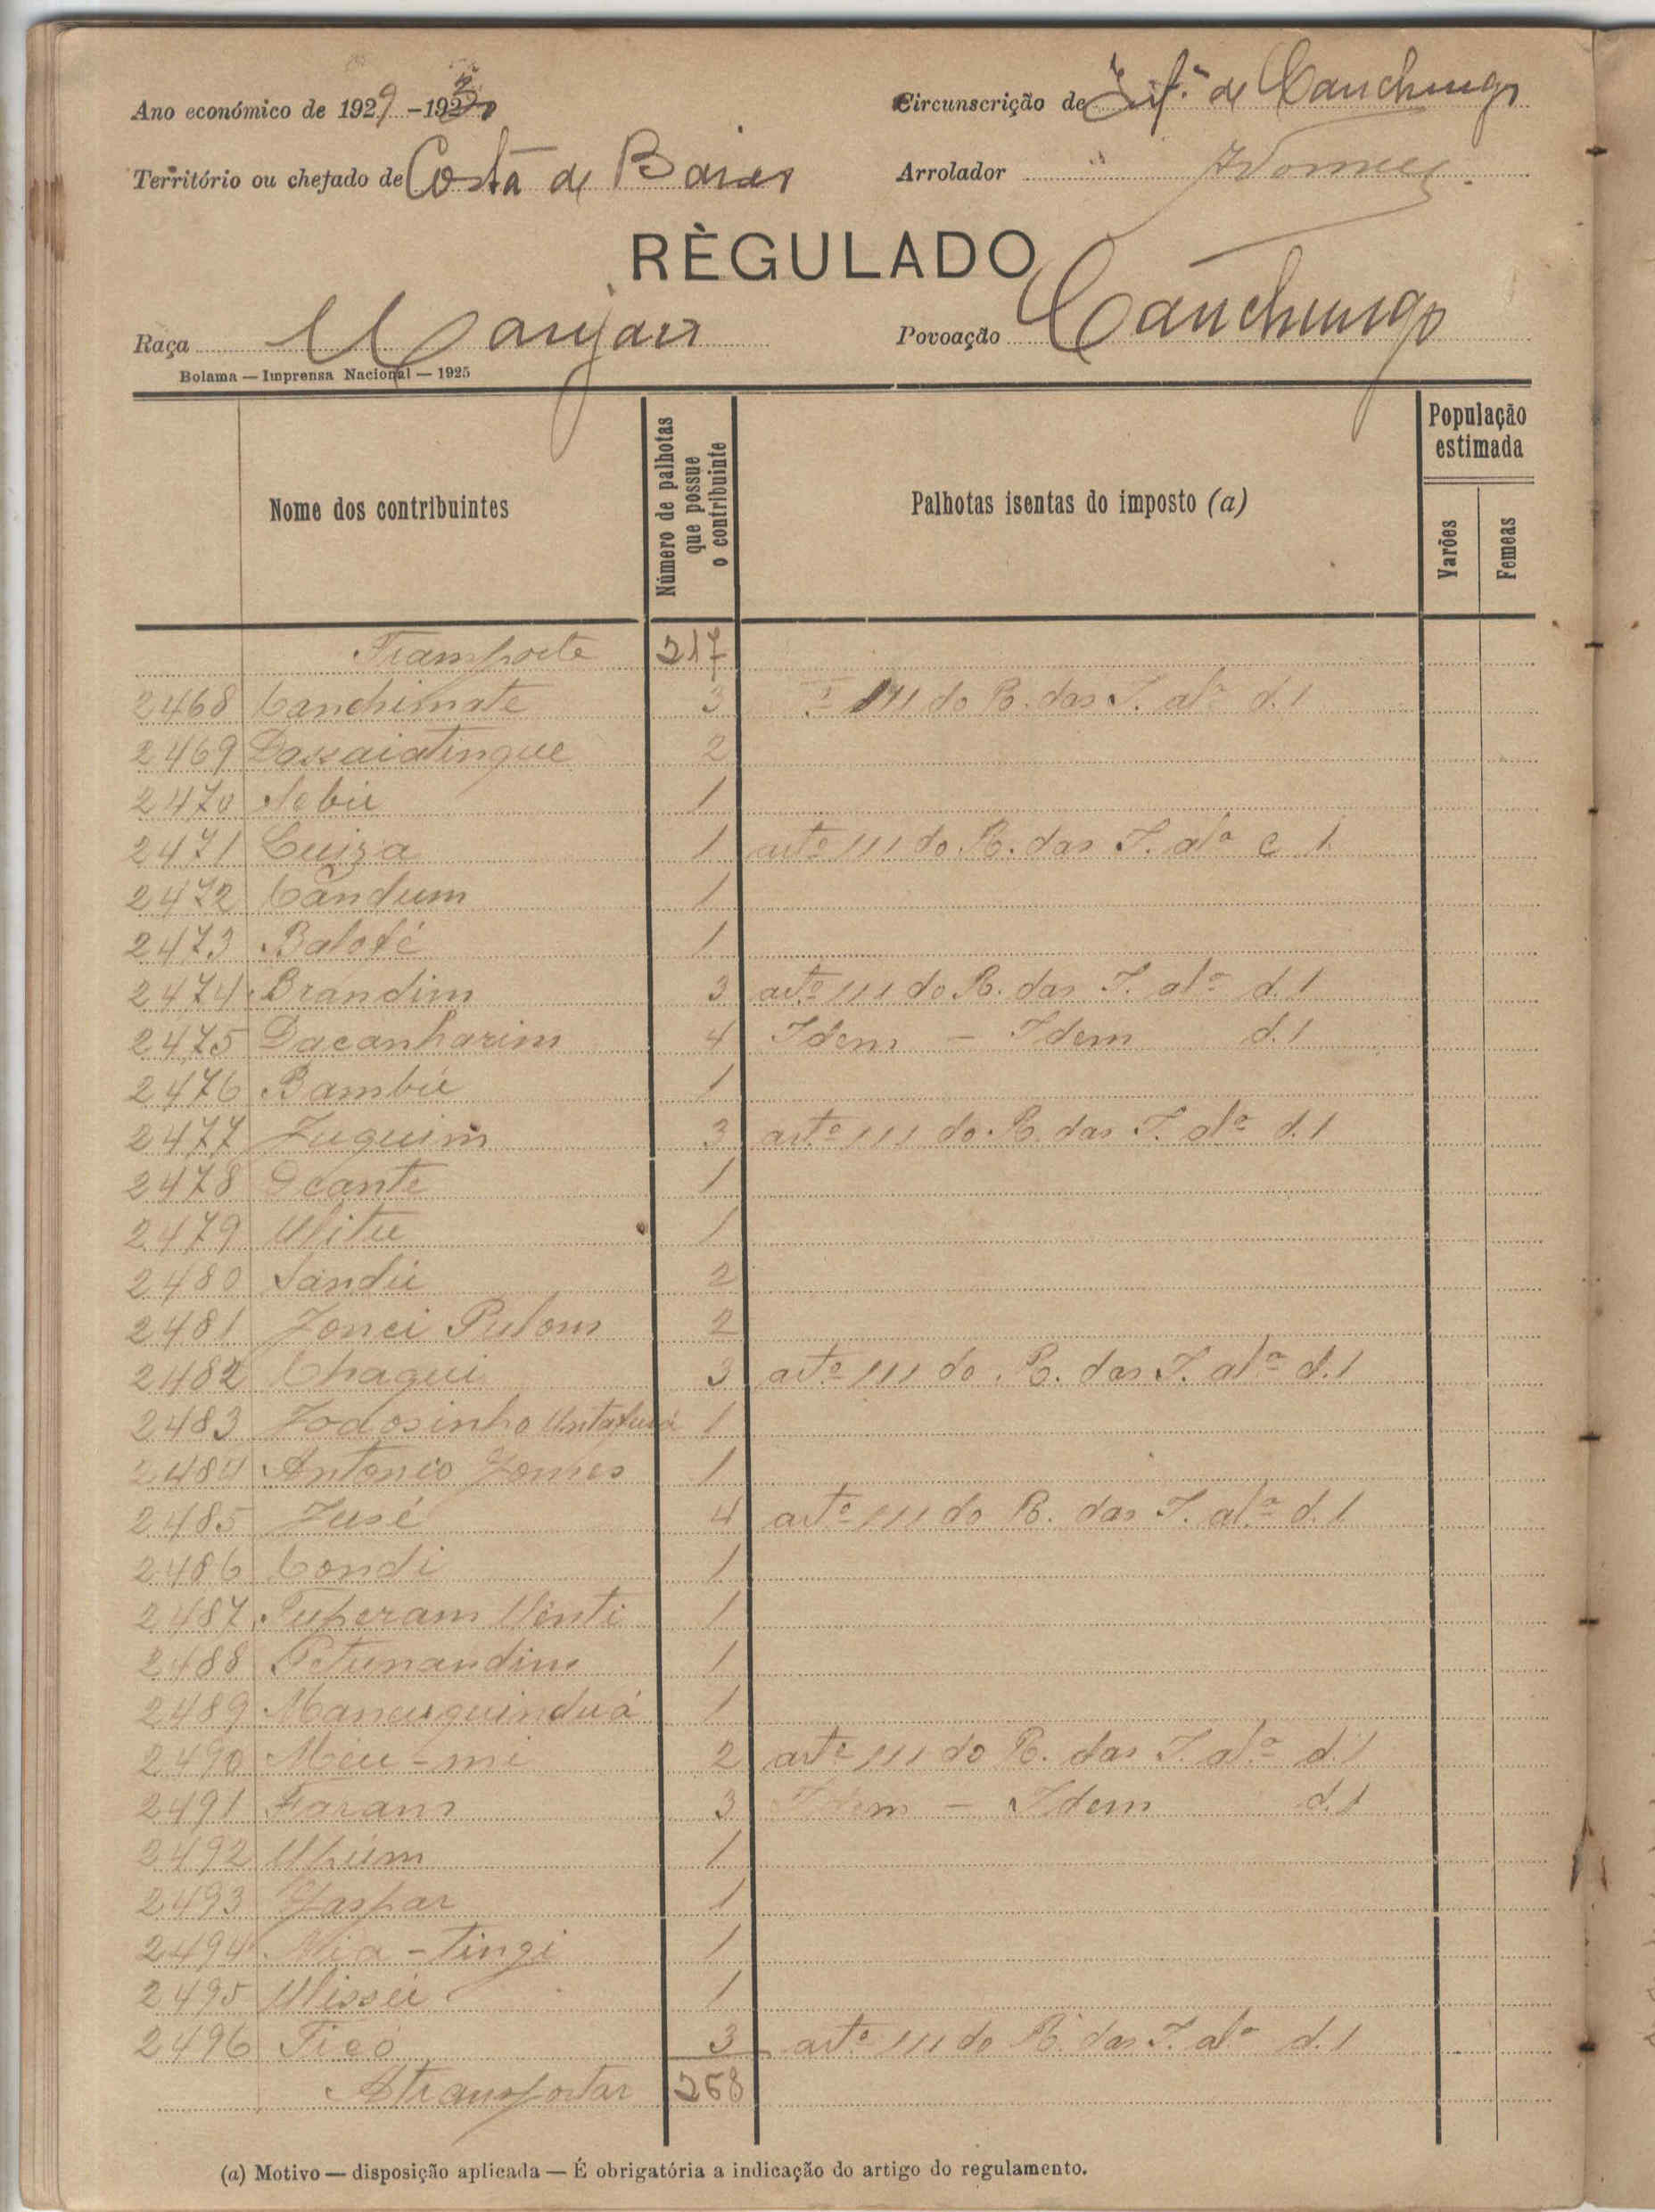 Ano económico de 1929-1930
Circunscrição de Inf.ª de Canchungo
Território ou chefado de Costa de Baixo
Arrolador
RÈGULADO
Raça Manjaco
Povoação Canchungo
Bolama — Imprensa Nacional — 1925
Nome dos contribuintes
Número de palhotas que possue o contribuinte
Palhotas isentas do imposto (a)
População estimada
Varões
Femeas
Transporte 217
2468 Canchimate 3 111 do R. das I. al.ª d. 1
2469 Dassaiatingue 2
2470 Nebú 1
2471 Luiza 1 art.º 111 do R. das I. al.ª c 1
2472 Candum 1
2473 Balofé 1
2474 Brandim 3 art.º 111 do R. das I. al.ª d. 1
2475 Dacanharim 4 Idem - Idem d. 1
2476 Bambú 1
2477 Zuguim 3 art.º 111 do R. das I. al.ª d. 1
2478 Ocante 1
2479 Ulitu 1
2480 Sandú 2
2481 Jonci Pulom 2
2482 Chaqui 3 art.º 111 do R. das I. al.ª d. 1
2483 Joaosinho 1
2484 Antonio Gomes 1
2485 Jusé 4 art.º 111 do R. das I. al.ª d. 1
2486 Condi 1
2487 Tuperam Uenti 1
2488 Petunandim 1
2489 Mancuguinduá 1
2490 Méu-mi 2 art.º 111 do R. das I. al.ª d. 1
2491 Faram 3 Idem - Idem d. 1
2492 Upúm 1
2493 Gaspar 1
2494 Nia-tingi 1
2495 Ulisséu 1
2496 Ticó 3 art.º 111 do R. das I. al.ª d. 1
A transportar 268
(a) Motivo — disposição aplicada — É obrigatória a indicação do artigo do regulamento.